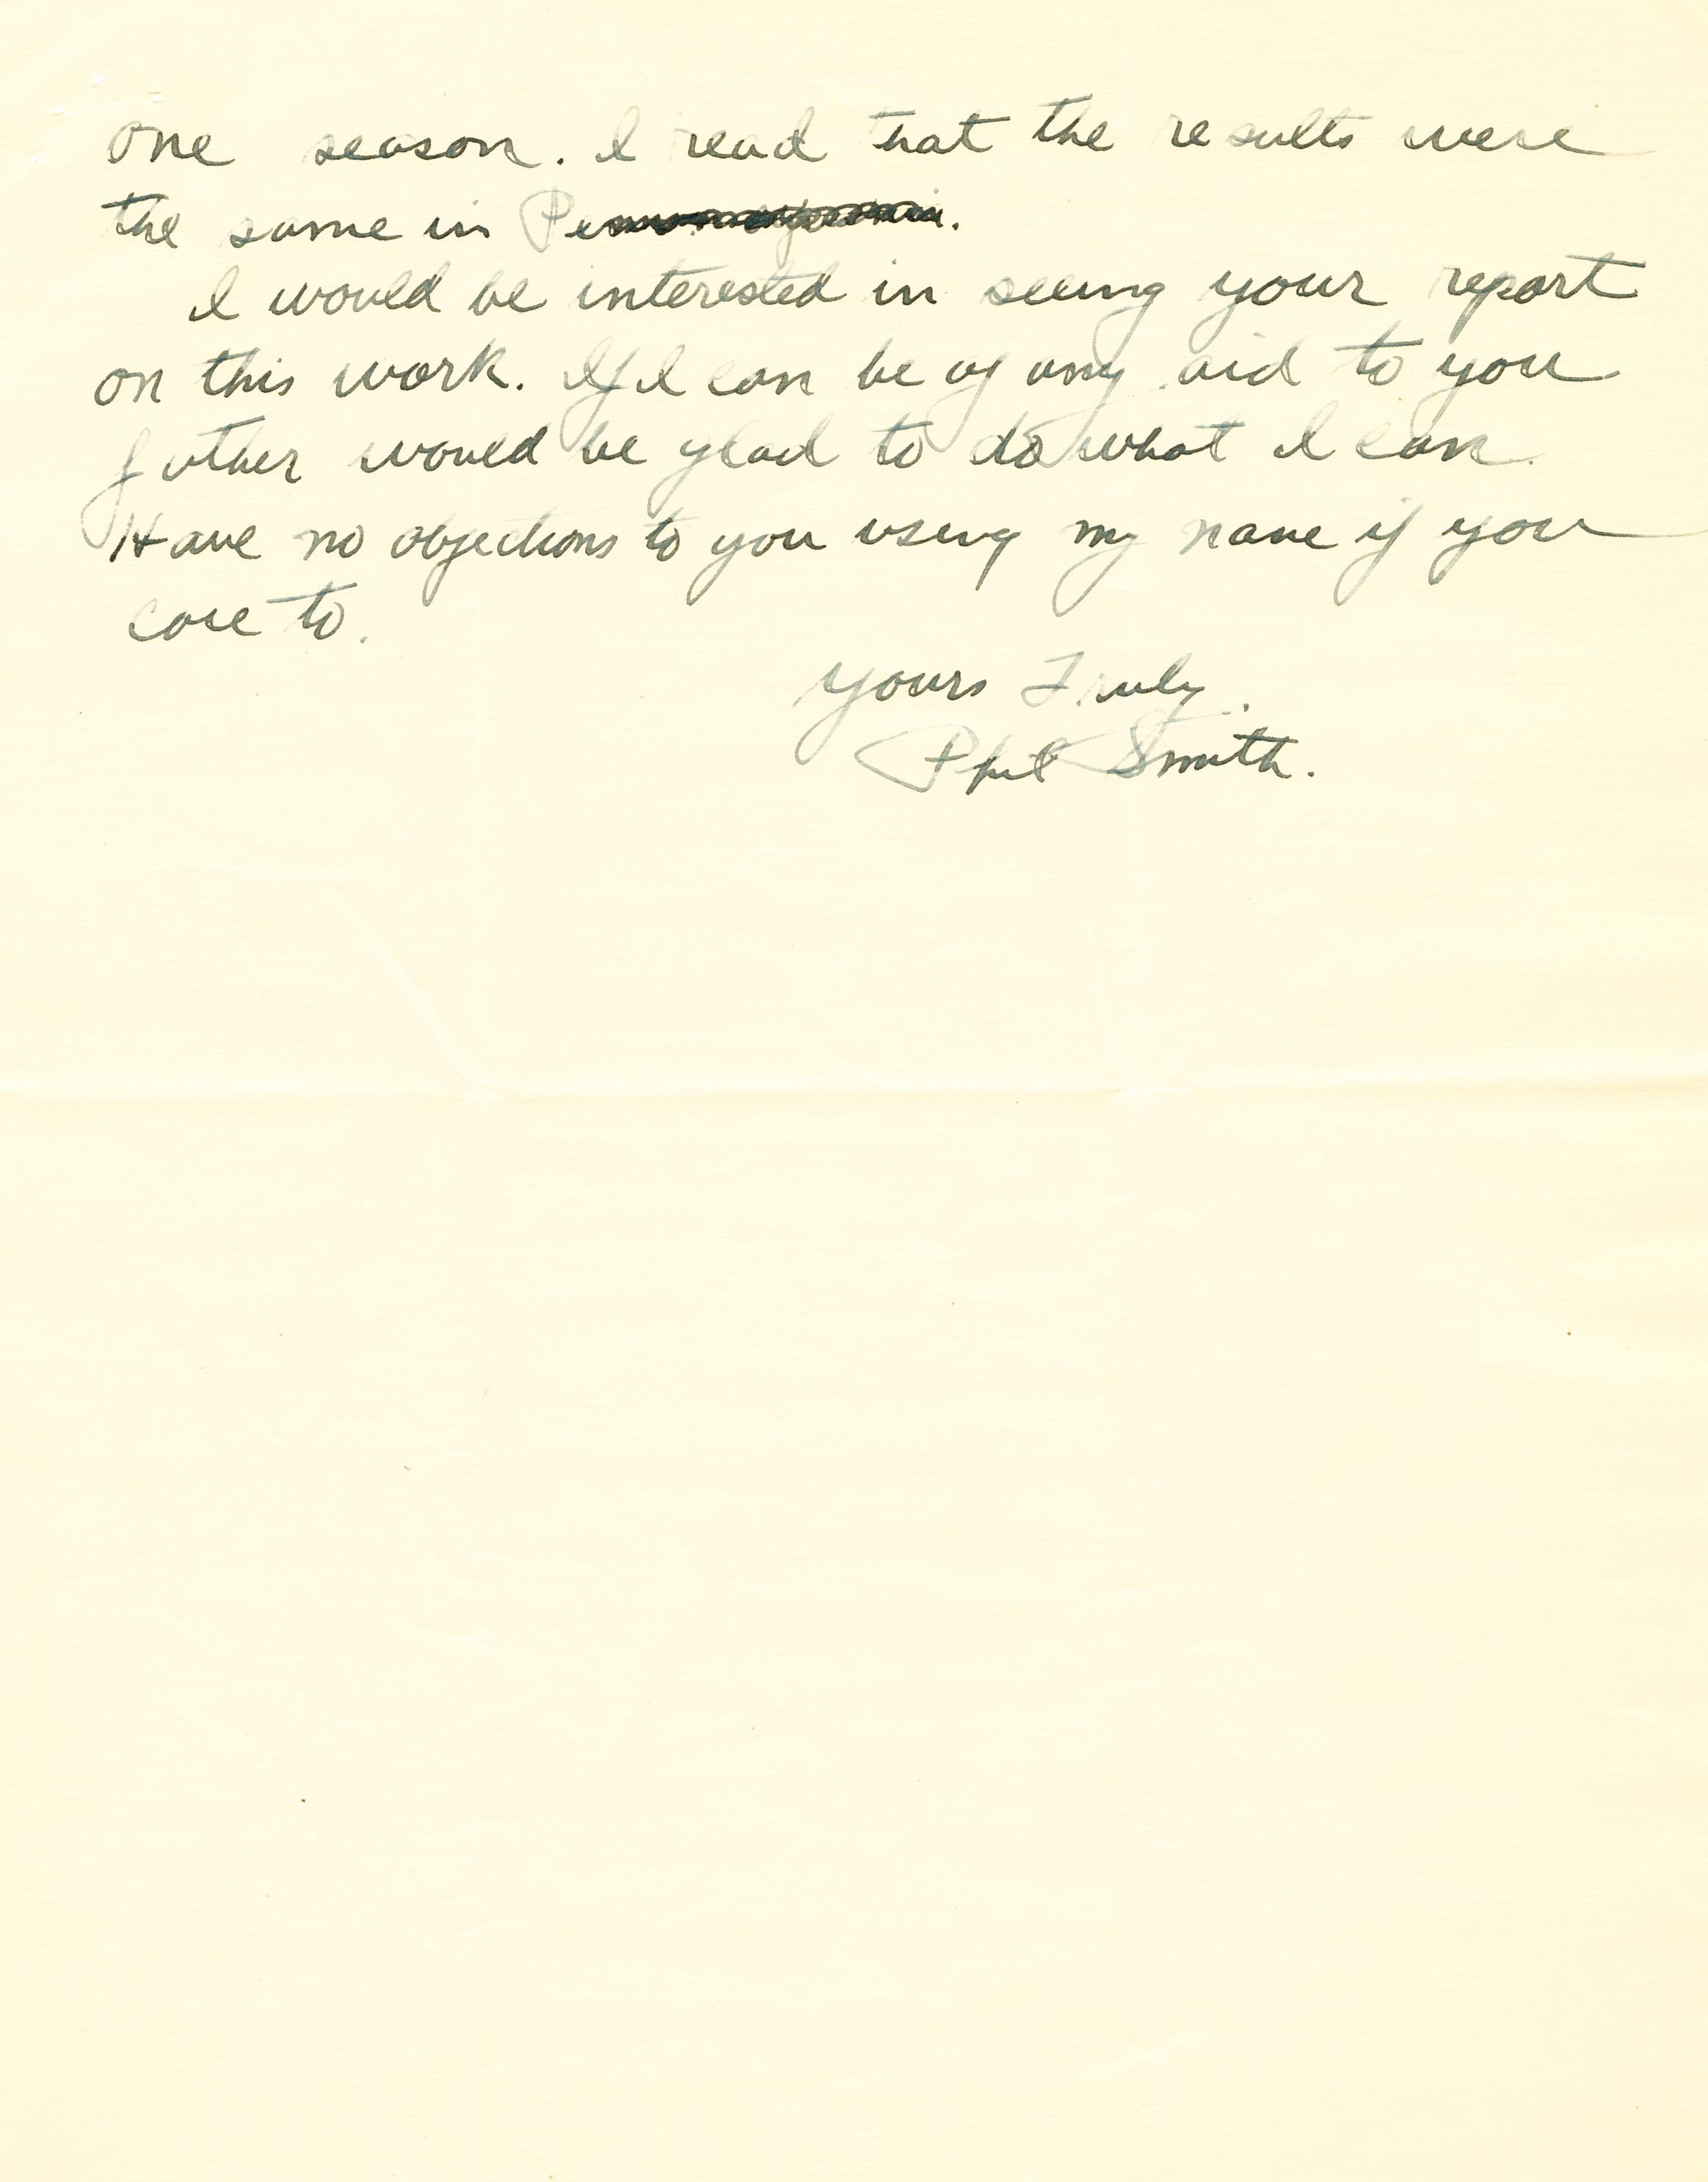 one season. I read that the results were
the same in
I would be interested in seeing your report
on this work. If I can be of any aid to you
futher would be glad to do what I can.
Have no objections to you using my name if you
care to.
Yours Truly.
Phil Smith.